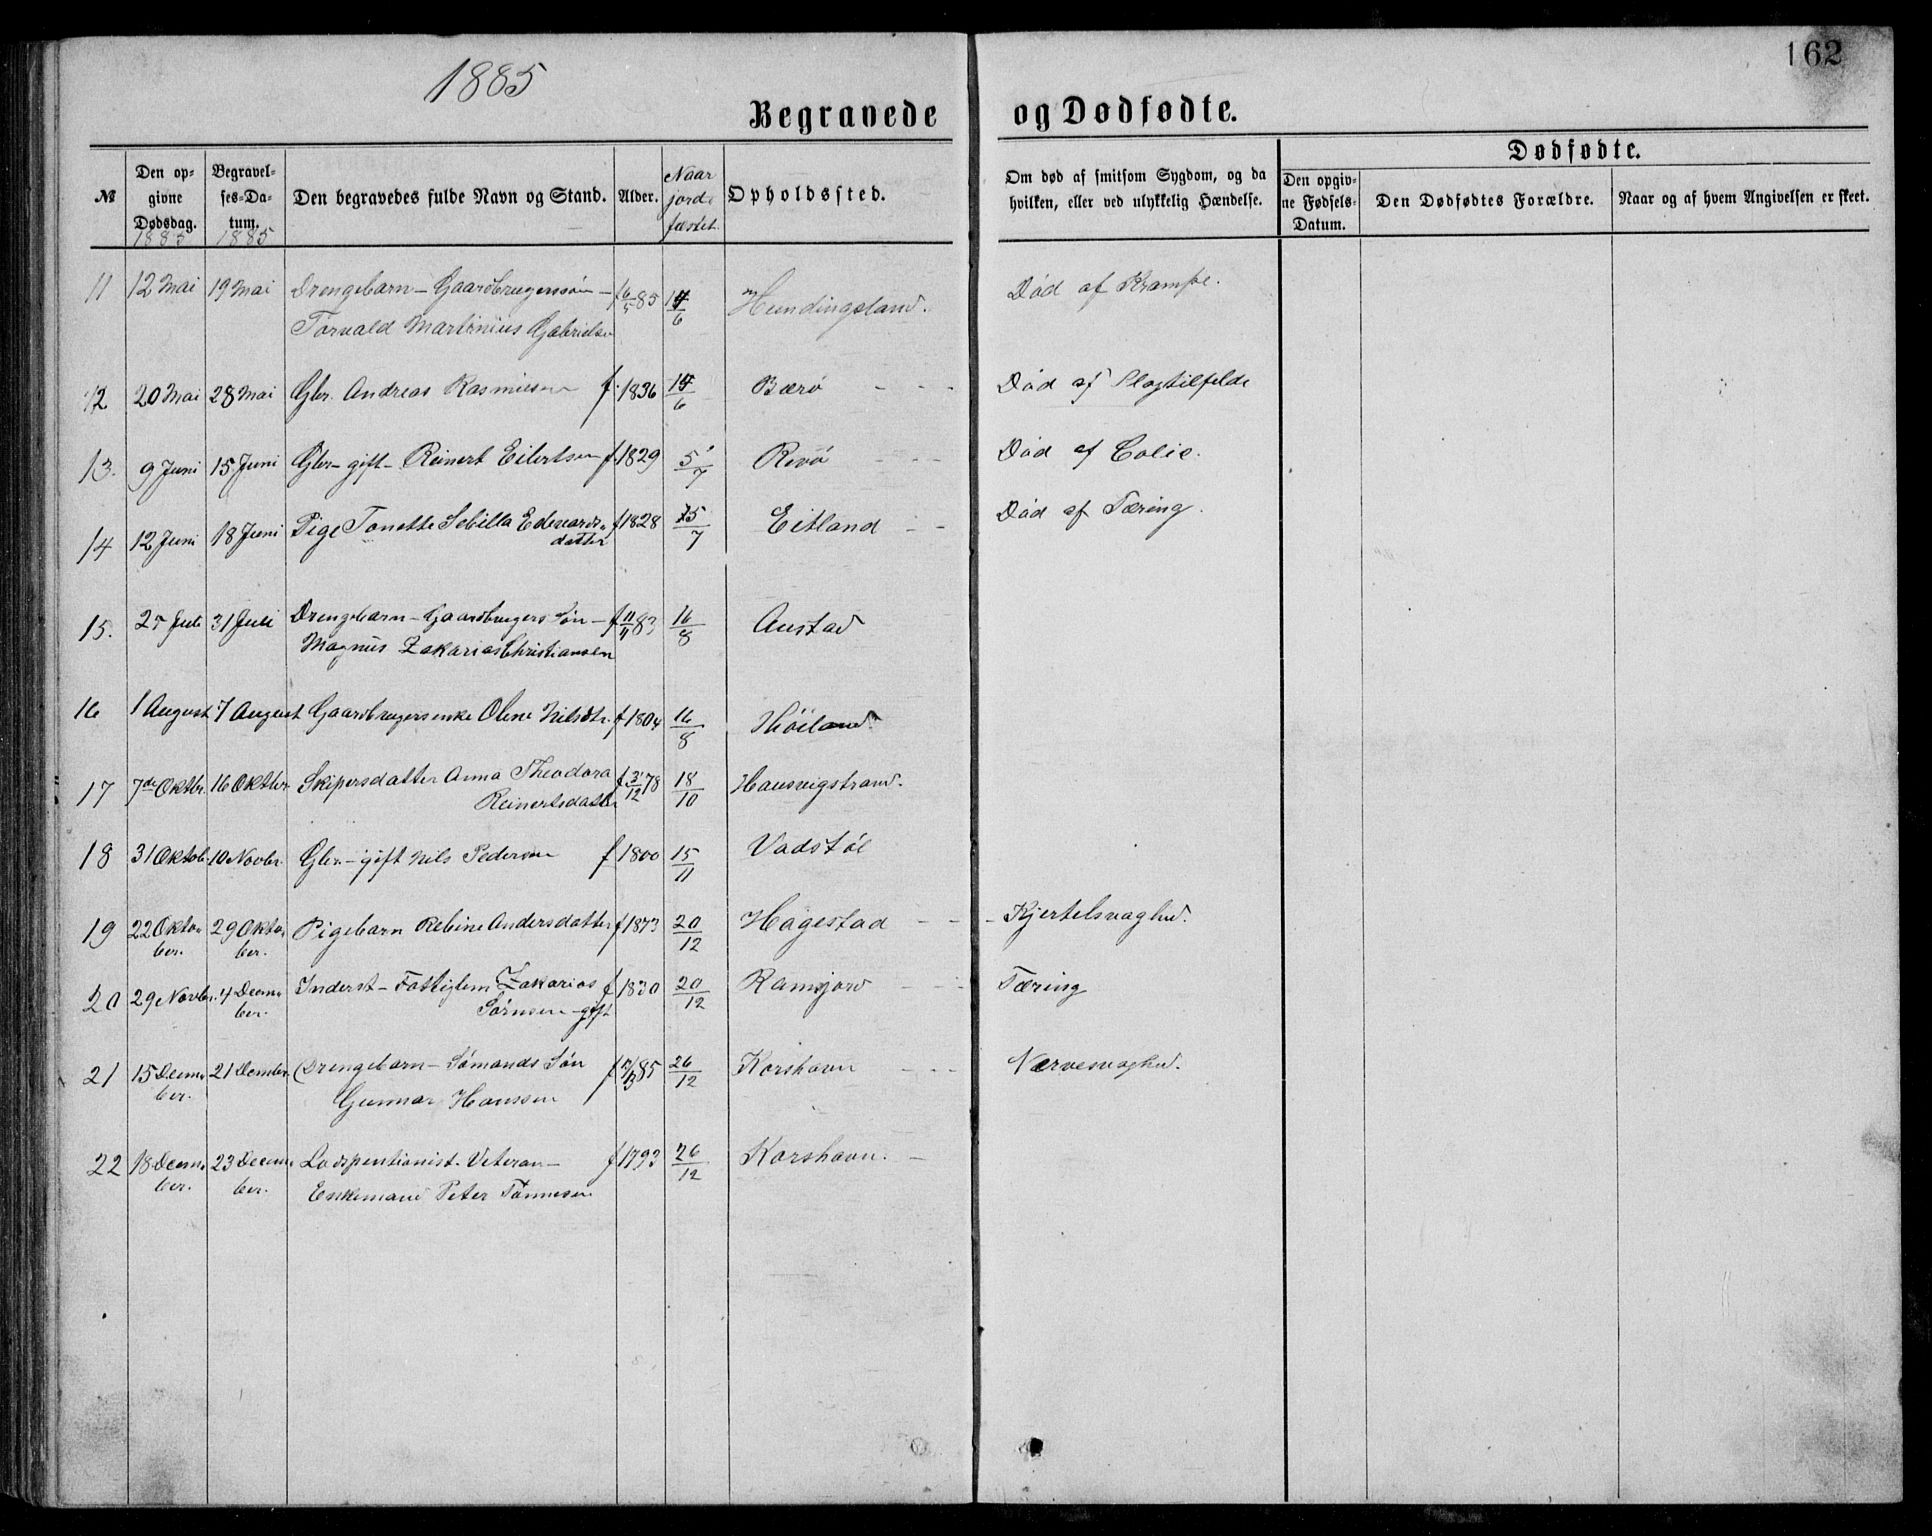 1885
162
Begravede og Dødfødte.
№ | Den opgivne Dødsdag. 1885 | Begravelses-Datum. 1885 | Den begravedes fulde Navn og Stand. | Alder. | Naar jordfæstet | Opholdssted. | Om død af smitsom Sygdom, og da hvilken, eller ved ulykkelig Hændelse. | Dødfødte. | Den opgivne Fødsels-Datum. | Den Dødfødtes Forældre. | Naar og af hvem Angivelsen er skeet.
11 | 12 Mai | 19 Mai | Drengebarn – Gaardbrugerssøn – | f 6/5 85 | 14/6 | Hundingsland. | Død af Krampe.
Torvald Martinius Gabrielsen
12 | 20 Mai | 28 Mai | Gbr. Andreas Rasmussen | f. 1836 | 14/6 | Bærø - - - | Død af Slagtilfelde
13. | 9 Juni | 15 Juni | Gbr – gift – Reinert Eilertsen | f. 1829 | 5/7 | Revø - - | Død af Colic.
14 | 12 Juni | 18 Juni | Pige Tonette Sebilla Edvards- | f 1828 | 5/7 | Eitland - - | Død af Tæring.
datter
15. | 25 Juli | 31 Juli | Drengebarn – Gaardbrugers Søn – | f 11/4 83 | 16/8 | Austad
Magnus Zakarias Christiansen
16 | 1 August | 7 August | Gaardbrugersenke Olene Nilsdtr. | f 1804 | 16/8 | Høiland
17 | 7de Oktbr. | 16 Oktbr. | Skipersdatter Anna Theodora | f 3/12 78 | 18/10 | Hausvigstrand.
Reinertsdatter
18 | 31 Oktob. | 10 Novbr. | Gbr. – gift Nils Pedersen | f 1800 | 15/11 | Vadstøl
19 | 22 Okto- | 29 Okto- | Pigebarn Rebine Andersdatter | f 1873 | 20/12 | Hågestad - - - | Kjertelsvaghed.
ber. | ber.
20 | 29 Novbr. | 4 Decem- | Inderst – Fattiglem Zakarias | f 1830 | 20/12 | Ramsjord - - - | Tæring
ber. | Sørnsen – gift
21 | 15 Decem- | 21 Dcember. | Drengebarn – Sømands Søn | f 85 | 26/12 | Korshavn - - - | Nærvesvaghed.
ber. | Gunnar Hanssen
22 | 18 Decem- | 23 Decem- | Lodspentionist. Veteran – | f 1793 | 26/12 | Korshavn. –
ber. | ber. | Enkemand Peter Tønnesen